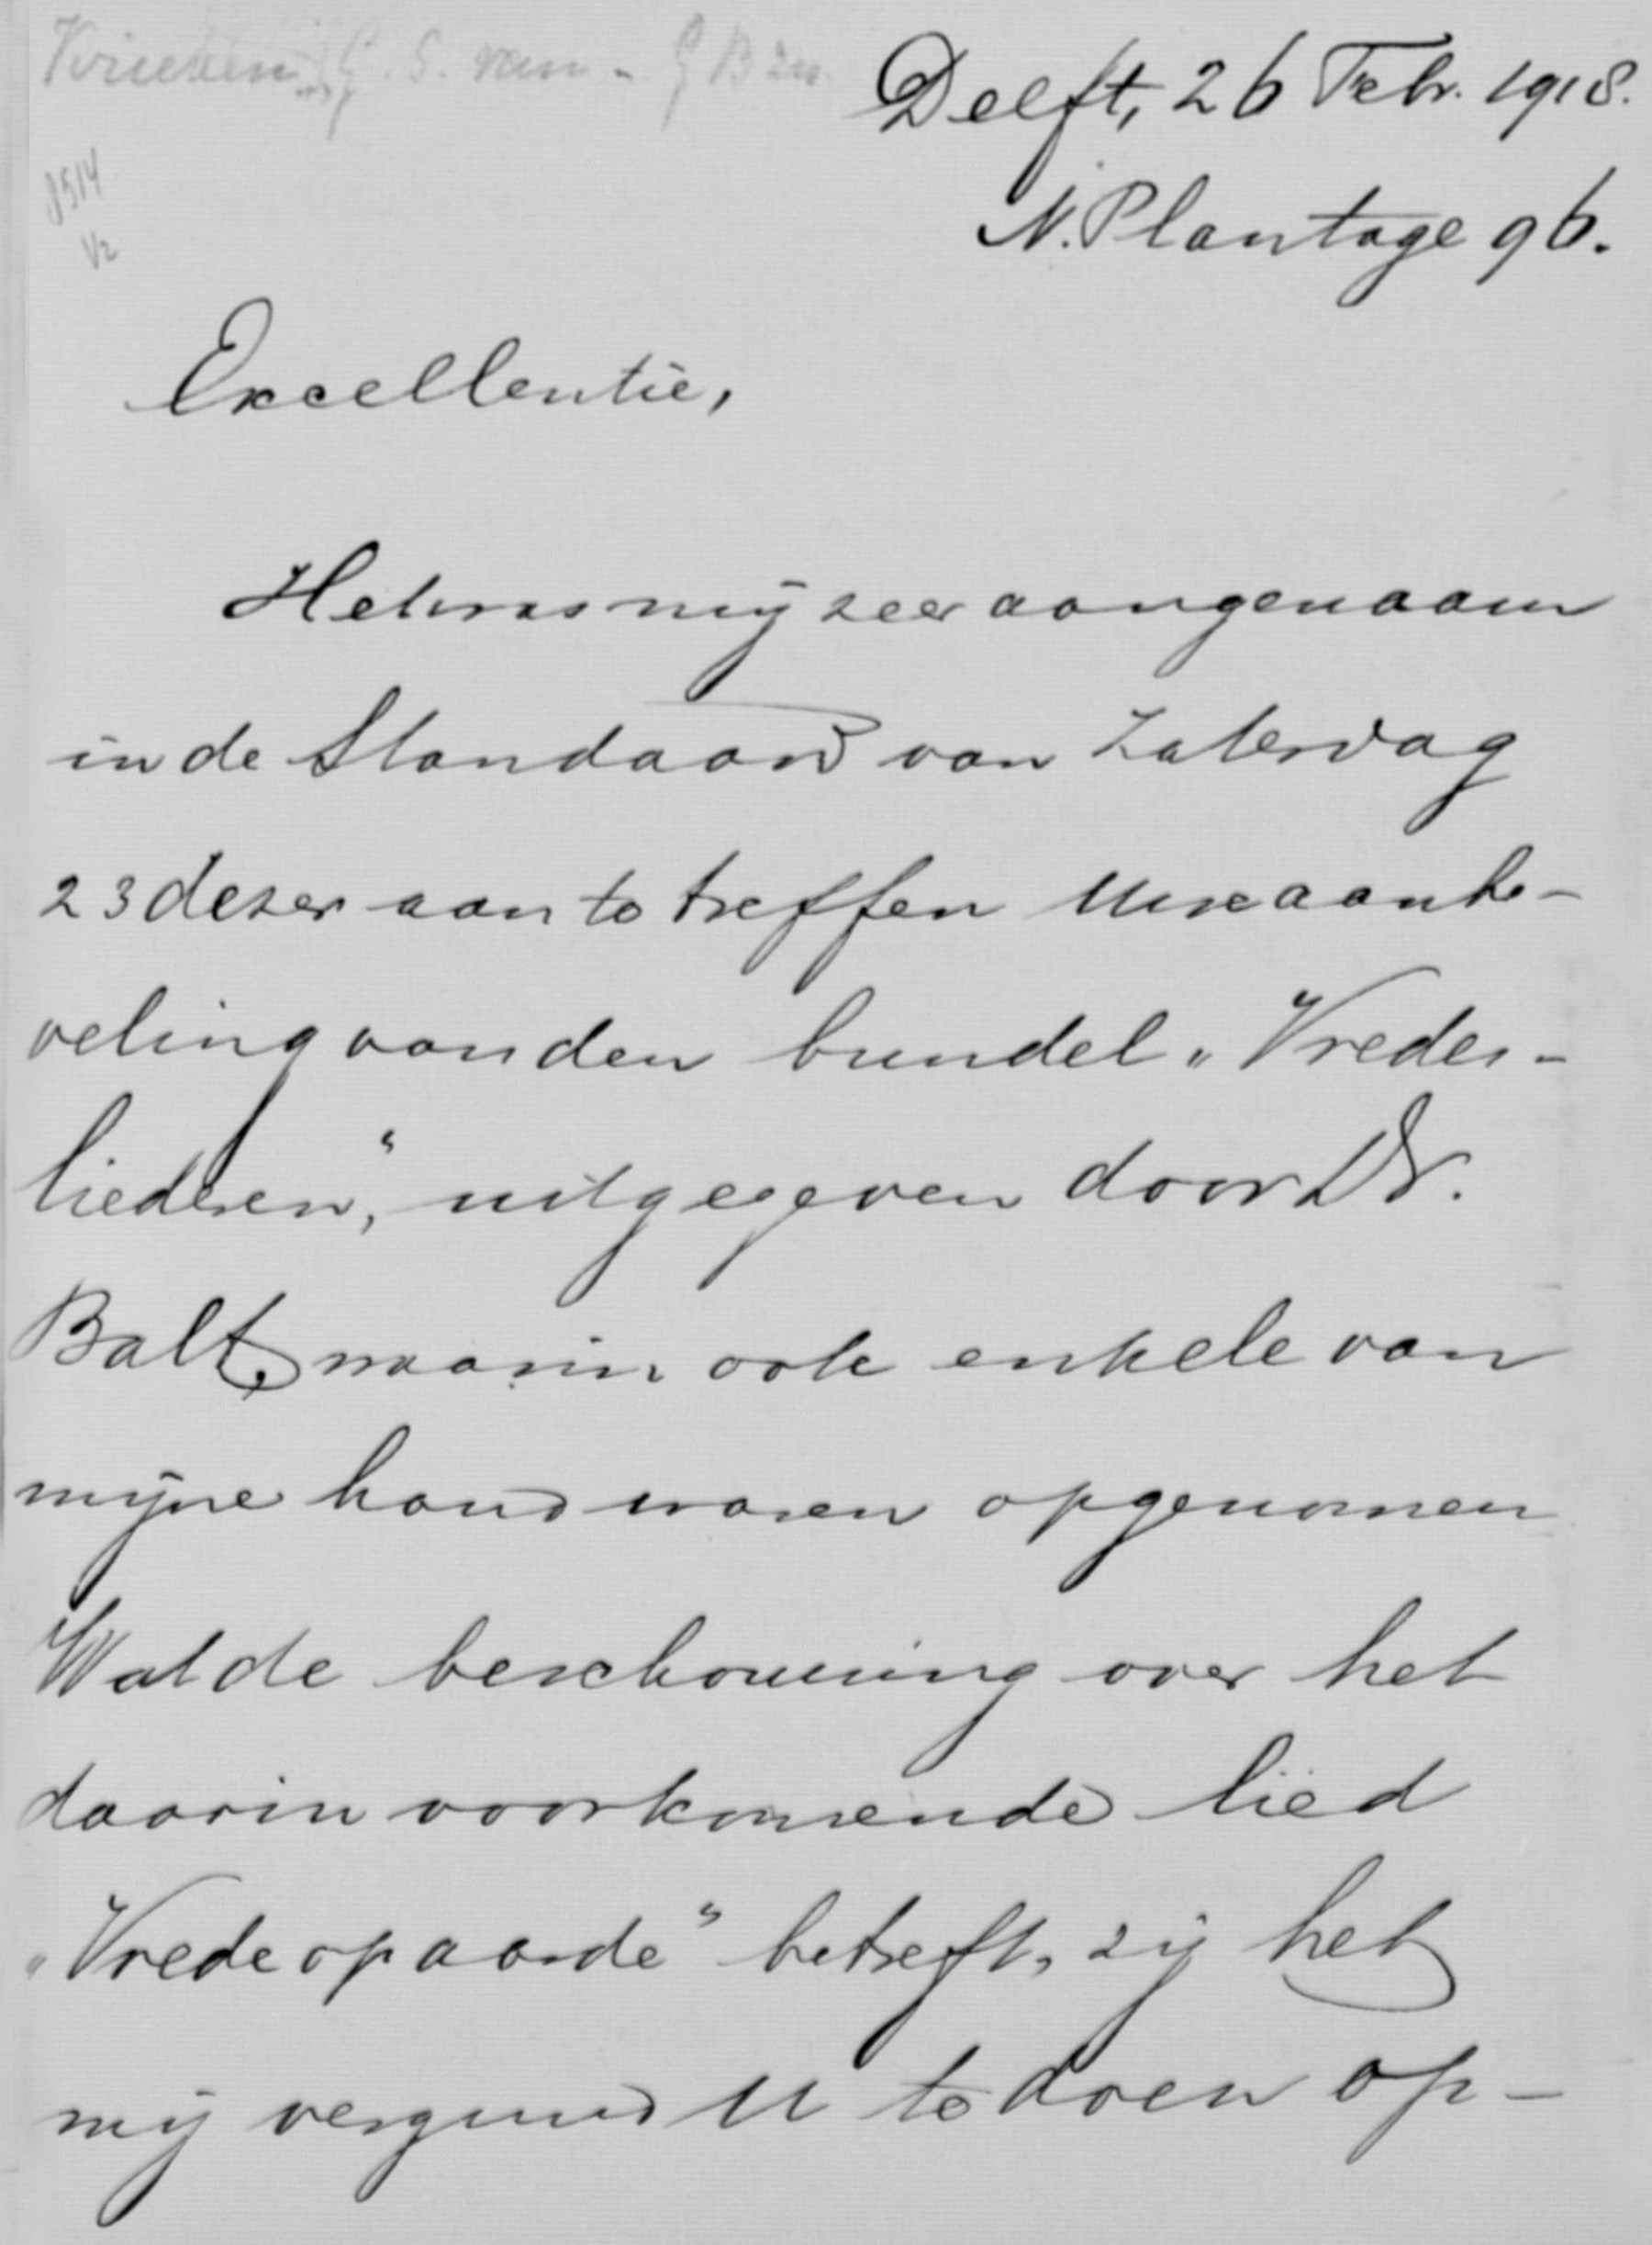 Krieken, G. S. van - G B zn.
Delft, 26 Febr. 1918.
8514
1/2
N. Plantage 96.
Excellentie,
Het was mij zeer aangenaam
in de Standaard van Zaterdag
23 dezer aan te treffen Uwe aanbe-
veling van den bundel „Vredes-
liederen", uitgegeven door Dr.
Balt, waarin ook enkele van
mijne hand waren opgenomen
Wat de beschouwing over het
daarin voorkomende lied
„Vrede op aarde" betreft, zij het
mij vergund U te doen op-